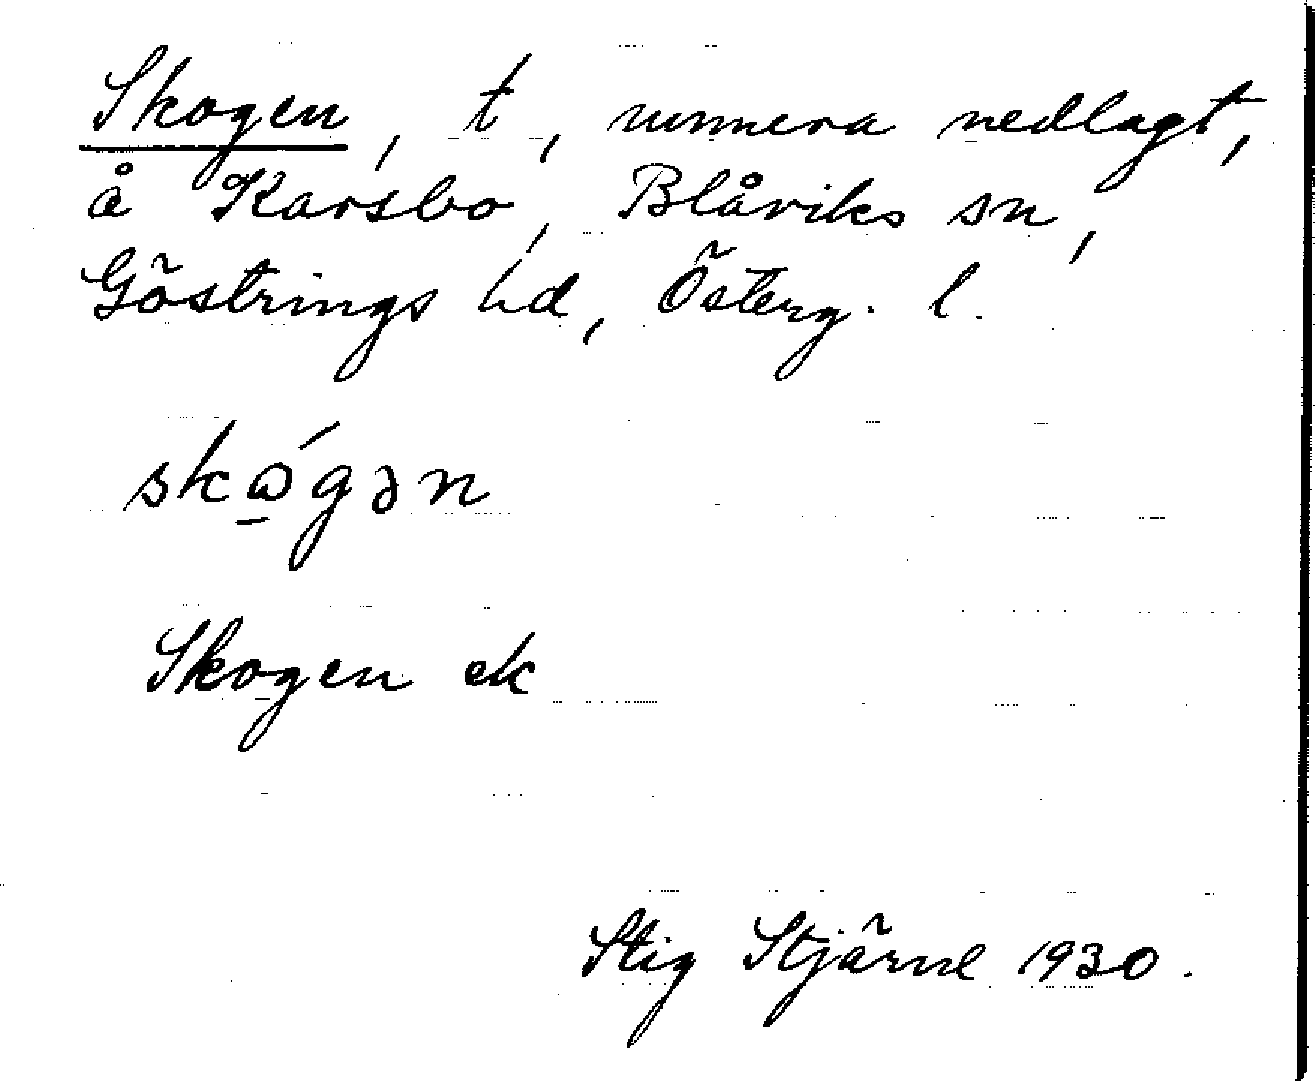 Skogen, t, numera nedlagt,
å Karsbo, Blåviks sn,
Göstrings hd, Österg. l.
skώ̱gən
Skogen ek
Stig Stjärne 1930.